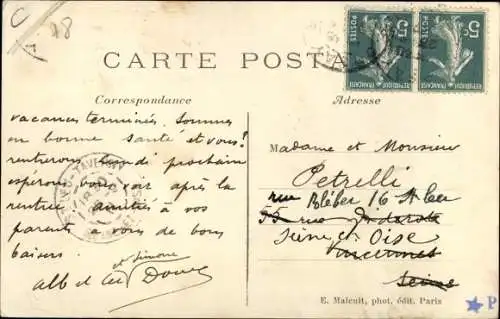 C
18
CARTE POSTALE
5c
POSTES
REPUBLIQUE FRANÇAISE
5c
POSTES
REPUBLIQUE FRANÇAISE
Correspondance
Adresse
TAVERNY
vacances terminés. Sommes
en bonne santé et vous?
rentrerons lundi prochain
espérons vous voir après la
rentrée amitiés à vos
parents à vous de bons
baisers
et Simone
Alb et
Madame et Monsieur
Petrelli
rue Kléber 16
55 rue Diderote
Seine et Oise
Vincennes
Seine
E. Malcuit, phot. édit. Paris
P